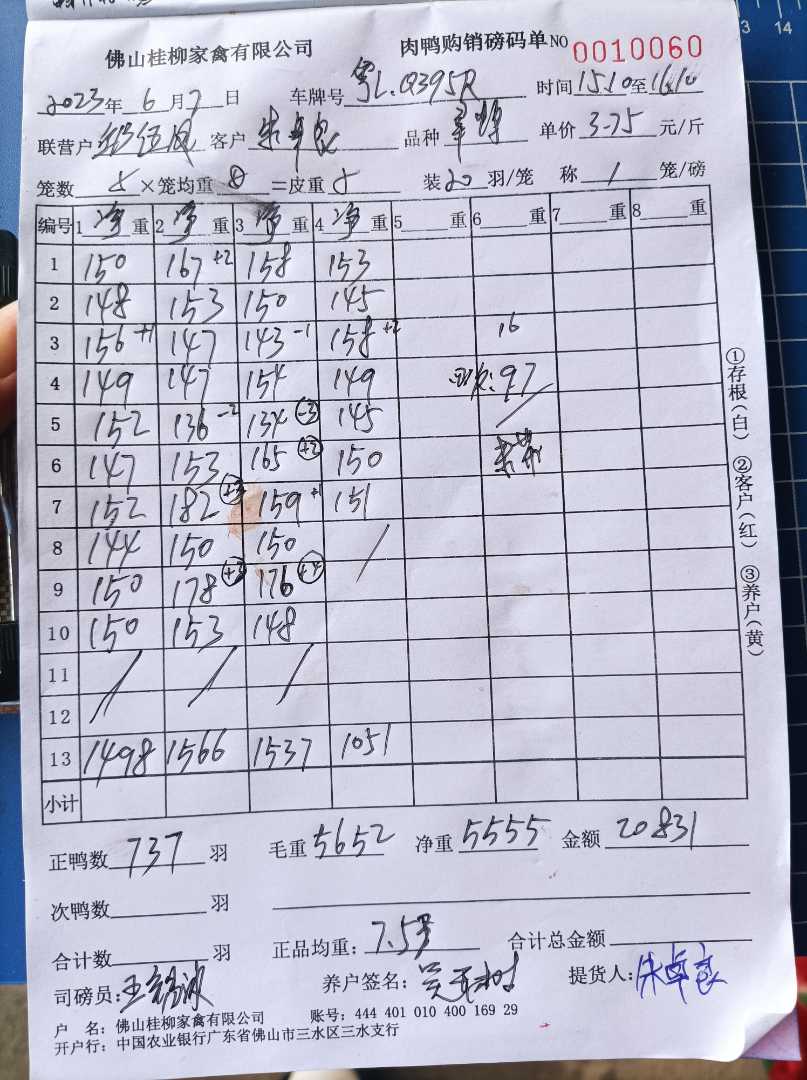 佛山桂柳家禽有限公司 肉鸭购销磅码单 NO 0010060
2023年 6月7日 车牌号 粤L.Q395R 时间 15:10 至 16:10
联营户 客户 朱卓良 品种 单价 3.75 元/斤
笼数 8 ×笼均重 0 =皮重 8 装 20 羽/笼 称 1 笼/磅
编号 1 净 重 2 净 重 3 净 重 4 净 重 5 重 6 重 7 重 8 重
1 150 167 +2 158 153
2 148 153 150 145
3 156 +1 147 143 -1 158 +2 16
4 149 147 154 149 97
5 152 136 -2 134 -3 145
6 147 153 165 +2 150
7 152 182 159 +1 151
8 144 150 150 /
9 150 178 +3 176 +4
10 150 153 148
11 / / /
12
13 1498 1566 1537 1051
小计
正鸭数 737 羽 毛重 5652 净重 5555 金额 20831
次鸭数 羽
合计数 羽 正品均重: 7.53 合计总金额
司磅员: 养户签名: 提货人: 朱卓良
户 名: 佛山桂柳家禽有限公司 账号: 444 401 010 400 169 29
开户行: 中国农业银行广东省佛山市三水区三水支行
①存根(白) ②客户(红) ③养户(黄)
13 14